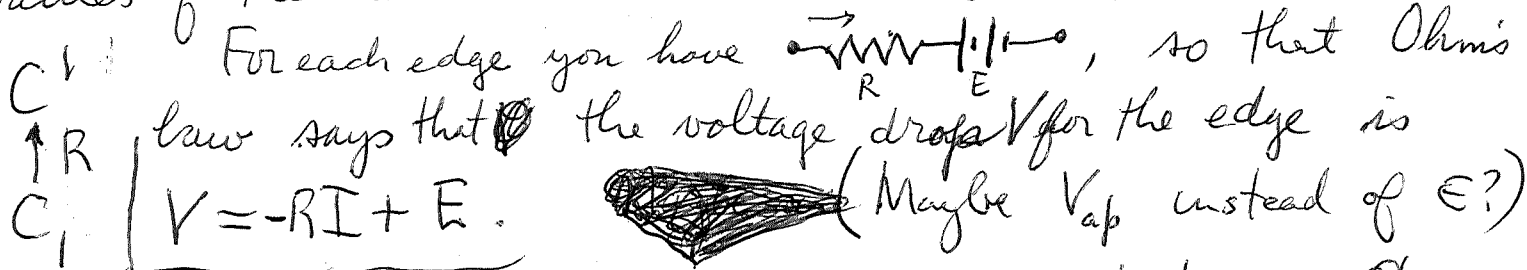 For each edge you have R E, so that Ohm's
law says that the voltage drop V for the edge is
V = -RI + E. (Maybe Vap instead of E?)
C¹
↑ R
C₁